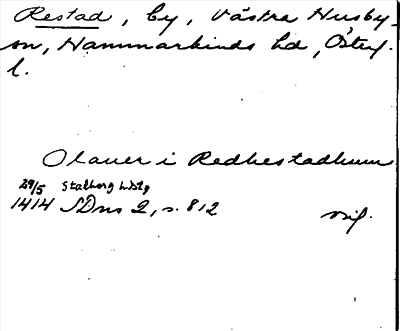 Restad, by, Västra Husby-
sn, Hammarkinds hd, Östergl.
l.
Olauer i Redhestadhum
29/5 Stalberg
1414 SDns 2, s. 812